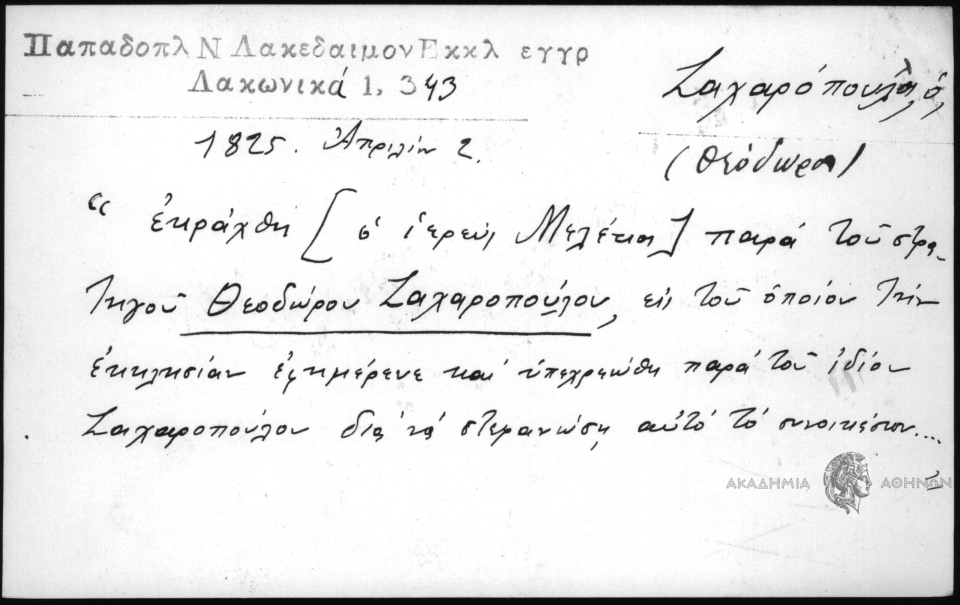 Παπαδοπλ Ν Λακεδαιμον Εκκλ εγγρ
Λακωνικά 1, 343
Ζαχαρόπουλος, ὁ,
1825. Ἀπριλίῳ 2.
(Θεόδωρος)
“ ἐκράχθη [ὁ ἱερεὺς Μελέτιος] παρὰ τοῦ στρα-
τηγοῦ Θεοδώρου Ζαχαροπούλου, εἰς τοῦ ὁποίου τὴν
ἐκκλησίαν ἐφημέρευε καὶ ὑπεχρεώθη παρὰ τοῦ ἰδίου
Ζαχαροπούλου διὰ νὰ στεφανώσῃ αὐτὸ τὸ συνοικέσιον....”
ΑΚΑΔΗΜΙΑ ΑΘΗΝΩΝ